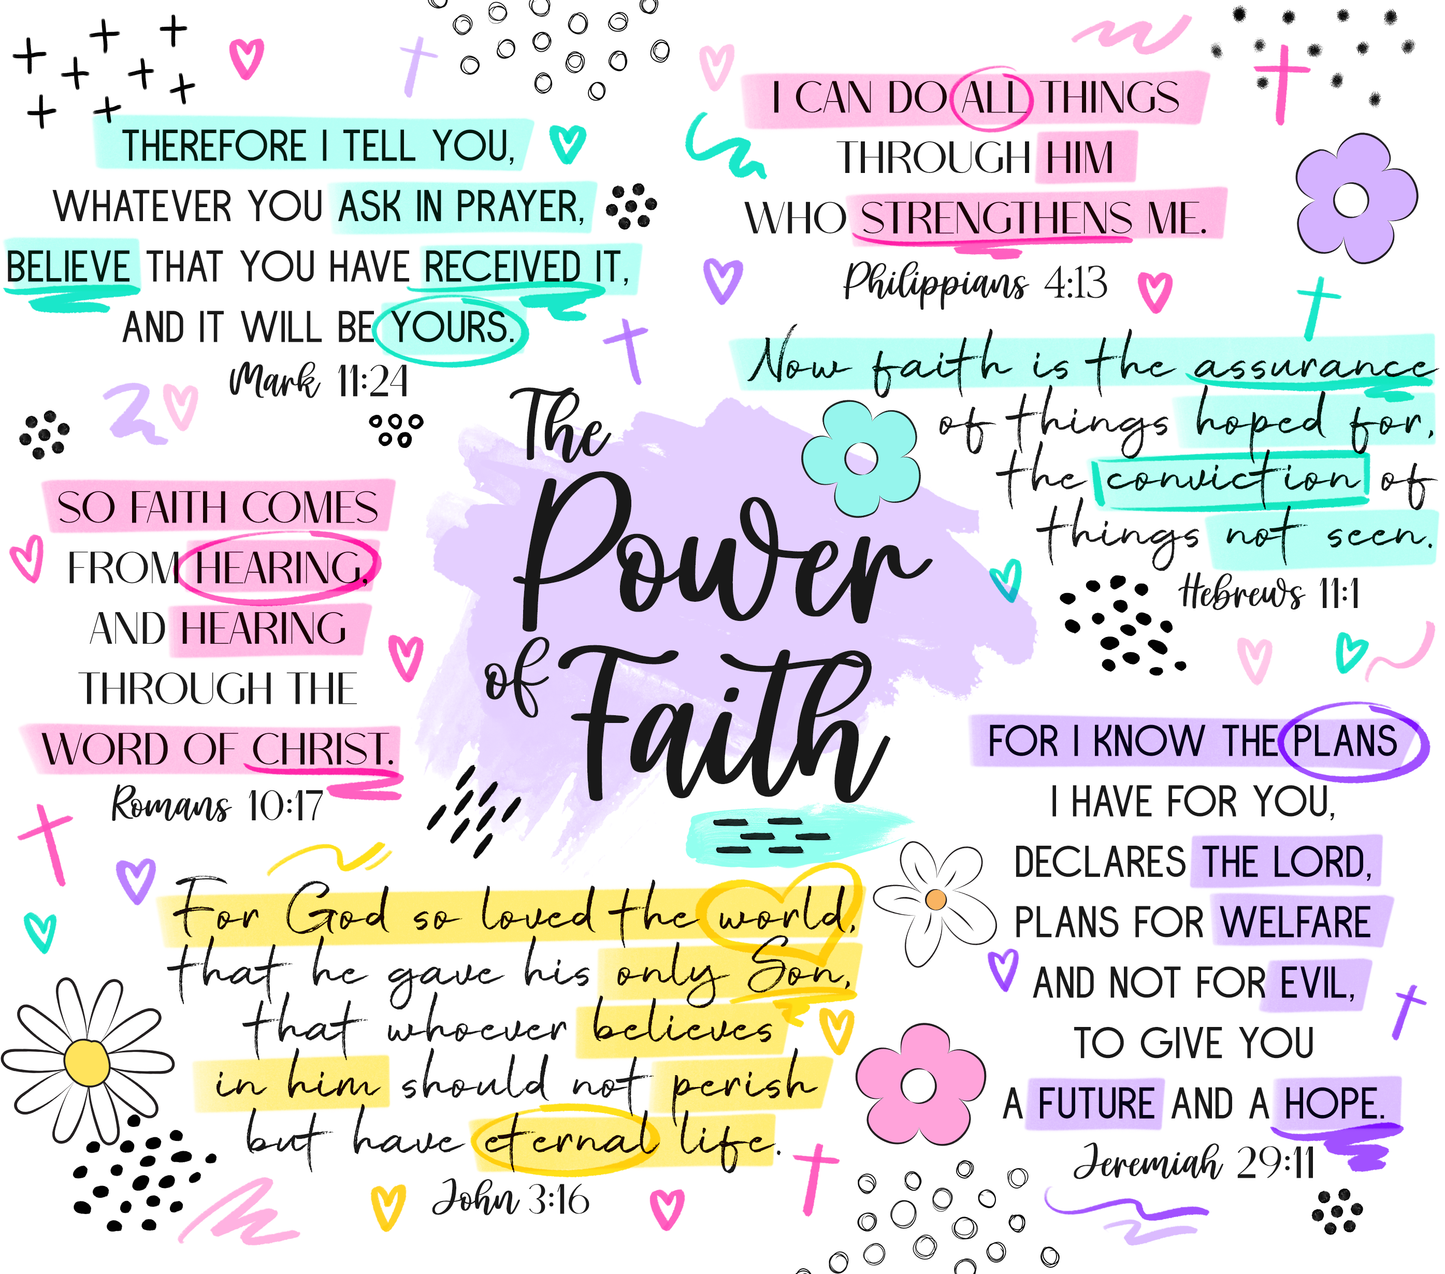 THEREFORE I TELL YOU,
WHATEVER YOU ASK IN PRAYER,
BELIEVE THAT YOU HAVE RECEIVED IT,
AND IT WILL BE YOURS.
Mark 11:24
I CAN DO ALL THINGS
THROUGH HIM
WHO STRENGTHENS ME.
Philippians 4:13
Now faith is the assurance
of things hoped for,
the conviction of
things not seen.
Hebrews 11:1
SO FAITH COMES
FROM HEARING,
AND HEARING
THROUGH THE
WORD OF CHRIST.
Romans 10:17
The
Power
of Faith
FOR I KNOW THE PLANS
I HAVE FOR YOU,
DECLARES THE LORD,
PLANS FOR WELFARE
AND NOT FOR EVIL,
TO GIVE YOU
A FUTURE AND A HOPE.
Jeremiah 29:11
For God so loved the world,
that he gave his only Son,
that whoever believes
in him should not perish
but have eternal life.
John 3:16